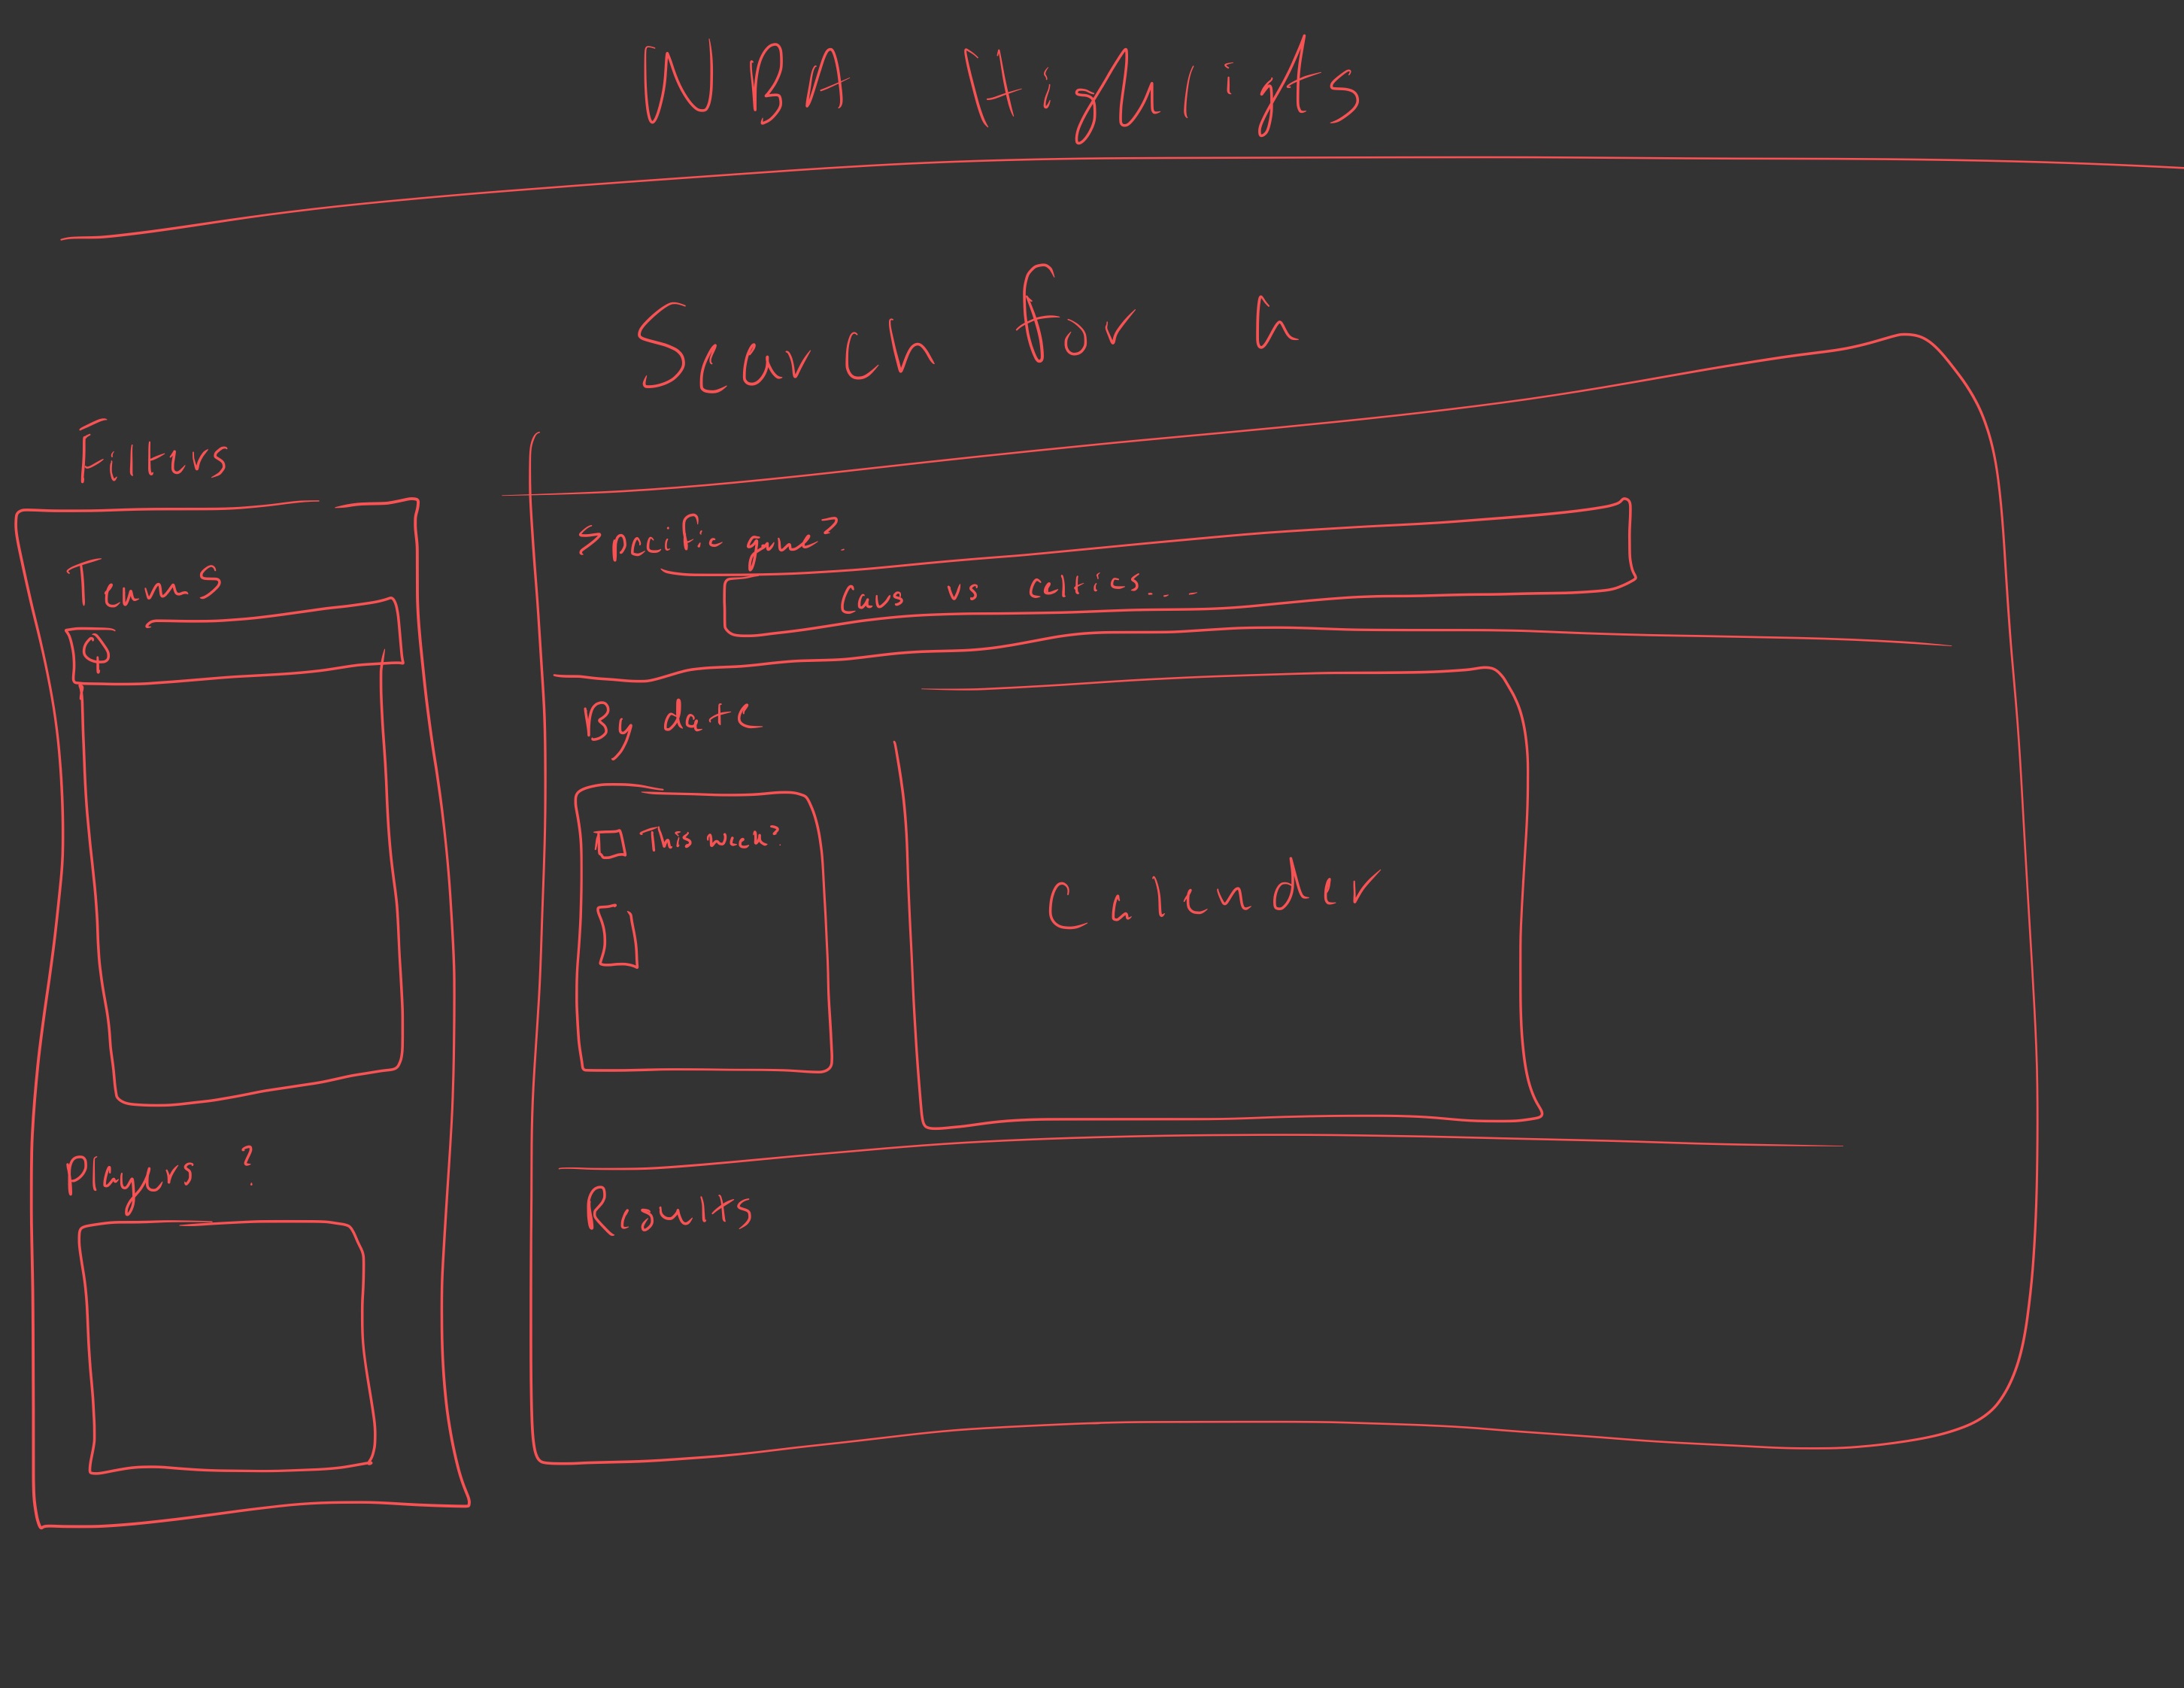 NBA Highlights
Search for a
Filters
Teams
Specific game?
Cavs vs celtics...
By date
This week?
Calender
Players ?
Results